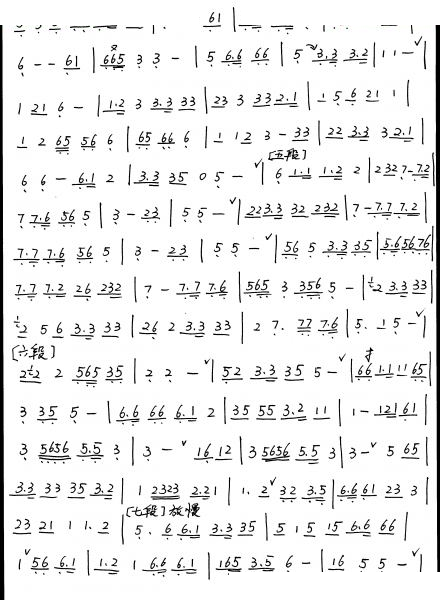 61 |
6 - - 61 | 665 3 3 - | 5 6.6 66 | 5 3.3 3.2 | 1 1 - ˅ |
1 21 6 - | 1.2 3 3.3 33 | 23 3 33 2.1 | 1 5 6 21 1 |
1 2 65 56 6 | 65 66 6 | 1 1 2 3 - 33 | 22 3.3 3 2.1 |
[五段]
6 6 - 6.1 2 | 3.3 35 0 5 - ˅ | 6 1.1 1.2 2 | 2 32 7 - 7.2 |
7 7.6 56 5 | 3 - 23 | 5 5 - ˅ | 22 3.3 32 232 | 7 - 7.7 7.2 |
7.7 7.6 56 5 | 3 - 23 | 5 5 - ˅ | 56 5 3.3 35 | 5.6 56 76 |
7.7 7.2 26 232 | 7 - 7.7 7.6 | 565 3 356 5 - | ½2 3.3 33 |
½2 5 6 3.3 33 | 26 2 3.3 33 | 2 7. 77 7.6 | 5. 1 5 - ˅ |
[六段]
2½2 2 565 35 | 2 2 - ˅ | 52 3.3 35 5 - ˅ | 66 1.1 11 65 |
3 35 5 - | 6.6 66 6.1 2 | 35 55 3.2 11 | 1 - 12 | 61 |
3 5656 5.5 3 | 3 - ˅ 16 12 | 3 5656 5.5 3 | 3 - ˅ 5 65 |
3.3 33 35 3.2 | 1 2323 2.21 | 1. 2 ˅ 32 3.5 | 6.6 61 23 3 |
[七段] 放慢
23 21 1 1. 2 | 5. 6 6.1 3.3 35 | 5 1 5 15 6.6 66 |
1 ˅ 56 6.1 | 1.2 1 6.6 6.1 | 165 3.5 6 - | 16 5 5 - ˅ |